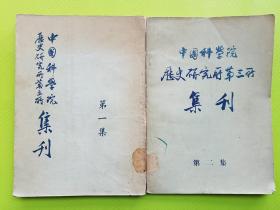 中国科学院
歷史研究所第三所
集刊
第一集
中国科学院
歷史研究所第三所
集刊
第二集